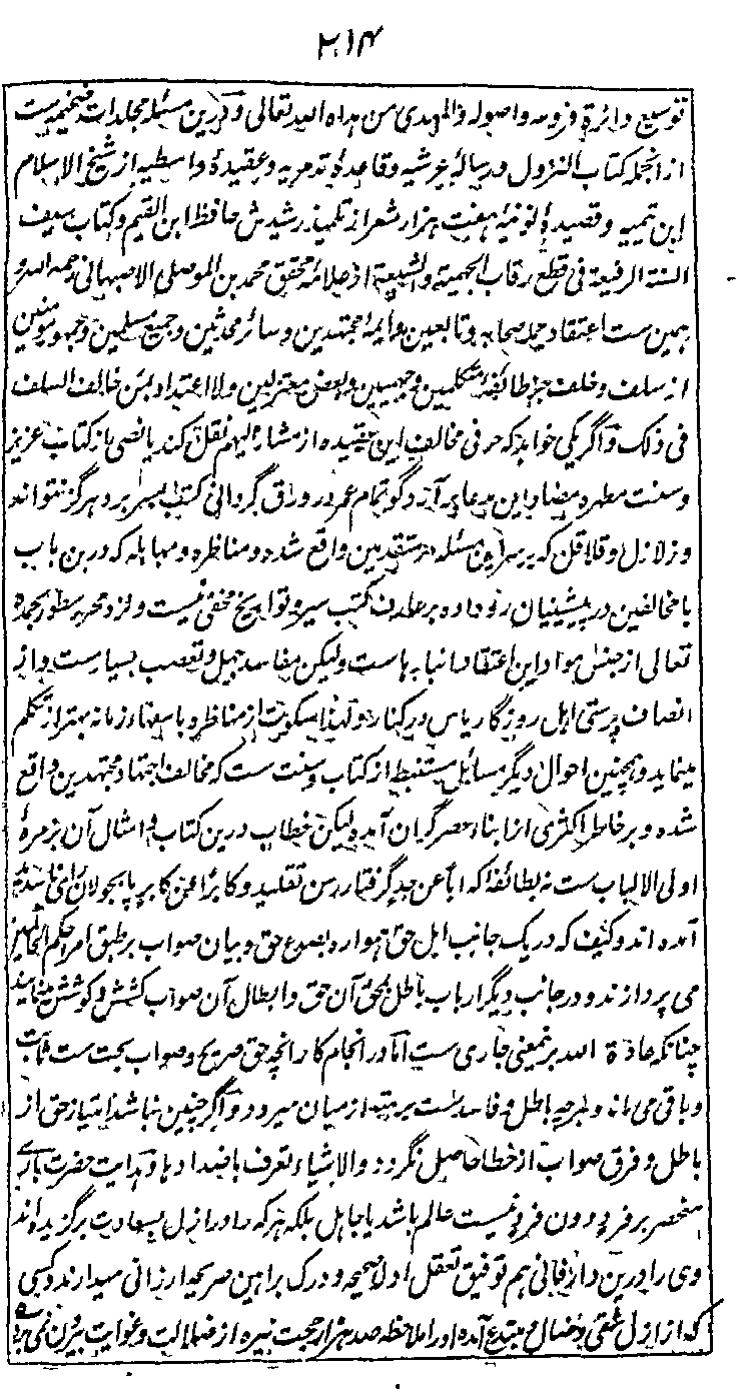 ۲۱۴
توسیع دائرۀ فروعه واصوله والمهدی من هداه الله تعالی و درین مسئله مجلدات ضخیمه ست
ازانجمله کتاب النزول و رسالۀ عرشیه وقاعدۀ تدمریه وعقیدۀ واسطیه از شیخ الاسلام
ابن تیمیه وقصیدۀ نونیه هفت هزار شعر از تلمیذ رشیدش حافظ ابن القیم وکتاب سیف
السنة الرفیعة فی قطع رقاب الجهمیة والشیعیة از علامه محقق محمد بن الموصلی الاصبهانی رحمه الله و
همین ست اعتقاد جمله صحابه وتابعین وایمۀ مجتهدین وسائر محدثین وجمیع مسلمین وجمهور مومنین
از سلف وخلف جز طائفۀ متکلمین وجهمیین وبعض معتزلین ولا اعتداد بمن خالف السلف
فی ذلک واگر یکی خواهد که حرفی مخالف این عقیده از مشار الیهم نقل کند یا نصی از کتاب عزیز
وسنت مطهره مضاد این مدعا بر آرد گو تمام عمر در ورق گردانی کتب بسر برد هرگز نتواند
وزلازل وقلاقل که بر سر این مسئله در متقدمین واقع شده ومناظره ومباهله که درین باب
با مخالفین در پیشینیان رو داده بر عارف کتب سیر وتواریخ مخفی نیست ونزد محرر سطور بحمده
تعالی از جنس مواد این اعتقاد انبارهاست ولیکن مفاسد جهل وتعصب بسیارست واز
انصاف پرستی اهل روزگار یاس در کنار ولهذا سکوت از مناظره با سفهاء زمانه بهتر از تکلم
مینماید وهمچنین احوال دیگر مسایل مستنبط از کتاب وسنت ست که مخالف اجتهاد مجتهدین واقع
شده وبر خاطر اکثری از ابناء عصر گران آمده لیکن خطاب درین کتاب وامثال آن بزمرۀ
اولی الالباب ست نه بطائفۀ که اباً عن جد گرفتار رسن تقلید وکابراً عن کابر پابجولان
آمده اند وکیف که در یک جانب اهل حق همواره بصدع حق وبیان صواب بر طبق امر احکم الحاکمین
می پردازند ودر جانب دیگر ارباب باطل بمحق آن حق وابطال آن صواب کشش وکوشش مینمایند
چنانکه عادة الله برینمعنی جاری ست اما در انجام کار انچه حق صریح وصواب بحت ست ثابت
وباقی می ماند وهرچه باطل وفاسدست بر ریته از میان میرود واگر چنین نباشد امتیاز حق از
باطل وفرق صواب از خطا حاصل نگردد والاشیاء تعرف باضدادها وهدایت حضرت باری
منحصر بر فرد دون فرد نیست عالم باشد یا جاهل بلکه هر که را در ازل بسعادت برگزیده اند
وی را درین دار فانی هم توفیق تعقل ادلۀ صحیحه ودرک براهین صریحه ارزانی میدارند وکسی
که از ازل شقی وضال ومبتدع آمده اورا ملاحظه صد هزار حجت نیره از ضلالت وغوایت بیرون نمی